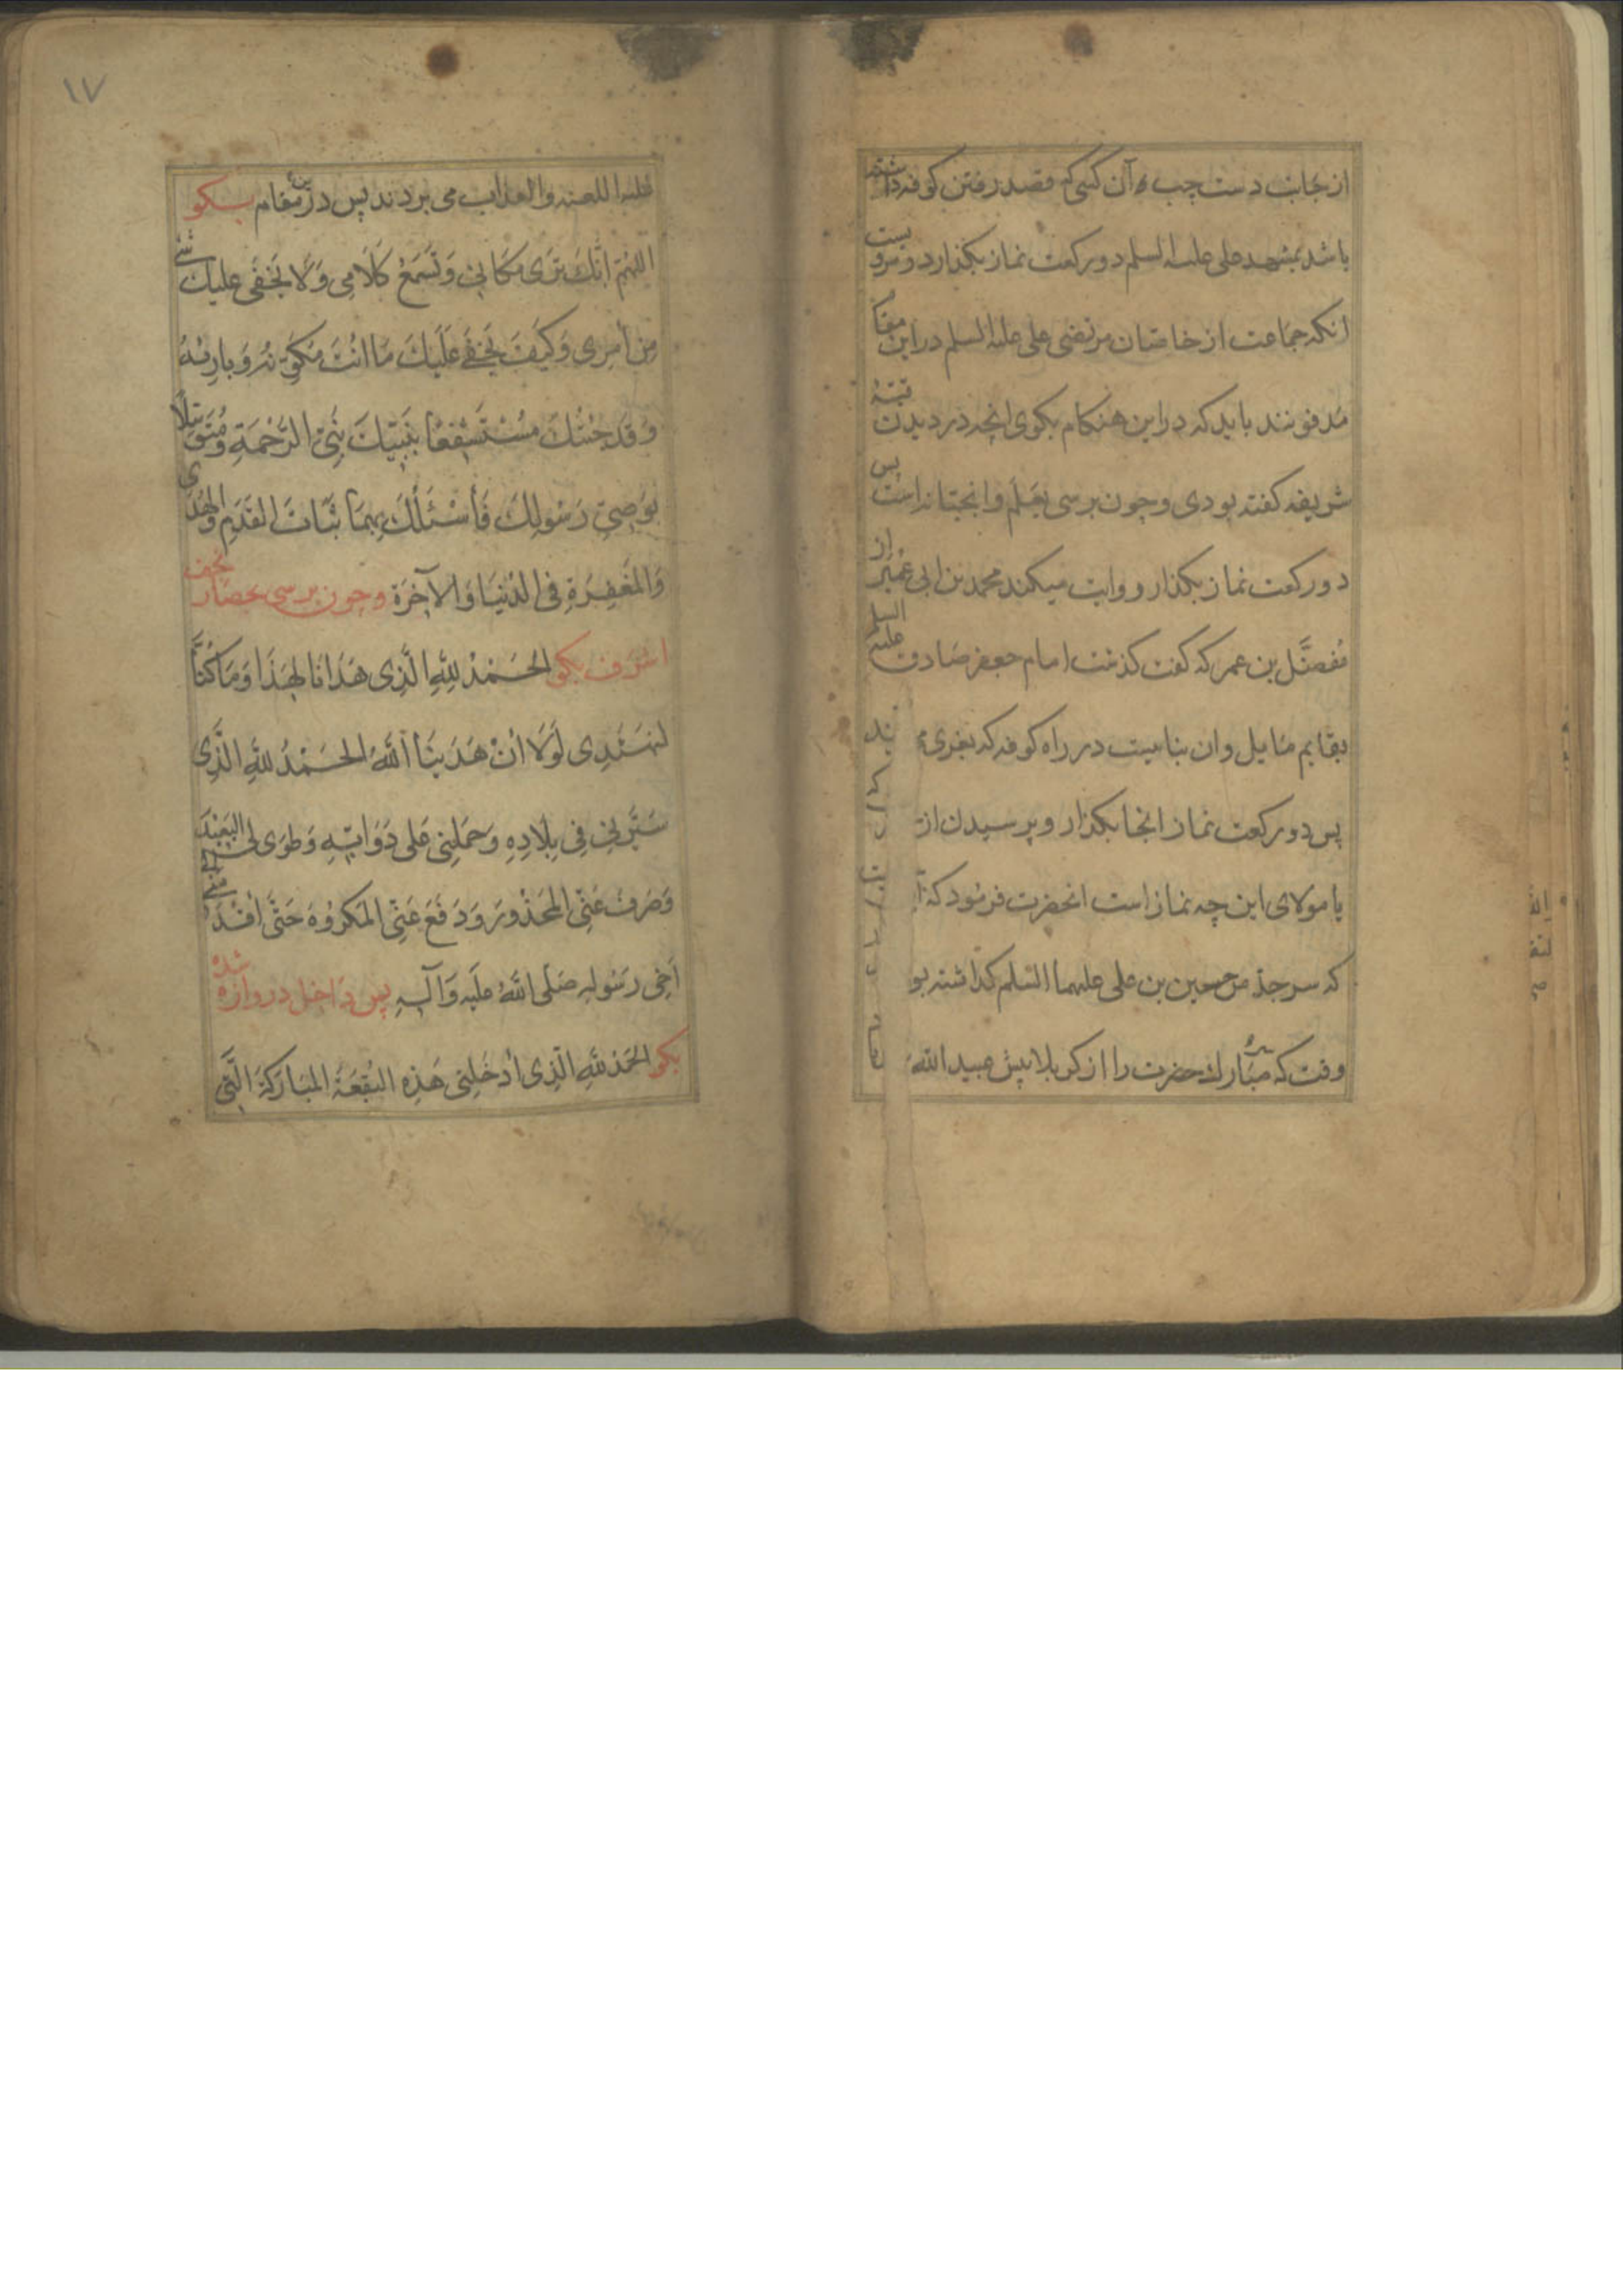 از جانب دست چپ ه آن کسی که قصد رفتن کوفه داشته
باشد بمشهد علی علیه السلم دو رکعت نماز بکذارد و مرویست
انکه جماعت از خاصان مرتضی علی علیه السلم در این مقا
مدفونند باید که در این هنکام بکوی انچه در دیدن قبّهٔ
شریفه کفته بودی و چون برسی بعَلَم و انجتانه است پس
دو رکعت نماز بکذار و روایت میکند محمد بن ابی عمیر از
مفضّل بن عمر که کفت کذشت امام جعفر صادق علیه السلم
بقایم مایل و ان بناییست در راه کوفه که بغری
پس دو رکعت نماز انجا بکذار و پرسیدن از
یا مولای این چه نماز است انحضرت فرمود که
که سر جد من حسین بن علی علیهما السّلم کذاشته بو
وقت که سر مبارک حضرت را از کربلا پیش عبید الله
۱۷
علیه اللعنه والعذاب می بردند پس در این مقام بکو
اللهُمّ اِنَّكَ تَرَی مَكَانِي وَتَسْمَعُ كَلَامِی وَلَا يَخْفَی عليك شئ
مِن أمرِی وَكَيْفَ يَخْفَى عَلَيْكَ مَا انْتَ مُكَوِّنُهُ وَبارِئهُ
وَقَد جِئتُكَ مُسْتَشْفِعًا بِنَبِيِّكَ نَبِيِّ الرَّحْمَةِ وَمُتَوَسِّلًا
بِوَصِيِّ رَسُولِكَ فَأَسْئَلُكَ بِهِمَا ثَبَاتَ القَدَمِ وَالهُدَی
وَالمَغفِرَةِ فِی الدُنيَا وَالآخِرَة و چون برسی بحصار نجف
اشرف بکو الحَمْدُ لِلهِ الَّذِی هَدَانَا لِهَذَا وَمَا كُنَّا
لِنَهتَدِی لَوْلَا أنْ هَدَينَا اللهُ الحَمْدُ للهِ الَّذِی
سَيَّرَنِي فِي بِلَادِهِ وَحَمَلَنِي عَلی دَوَابِّهِ وَطَوَی لِي البَعِيدَ
وَصَرَفَ عَنِّی المَحْذُورَ وَدَفَعَ عَنِّي المَكرُوهَ حَتَّی اقْدَمَنِي
أخِی رَسُولِه صَلَی اللهُ عَلَيه وَآلِهِ پس داخل دروازه شده
بکو الحَمْدُ للهِ الَّذِی أدْخَلَنِي هَذِهِ البُقعَةَ المُبَارَكَةَ الَّتِي